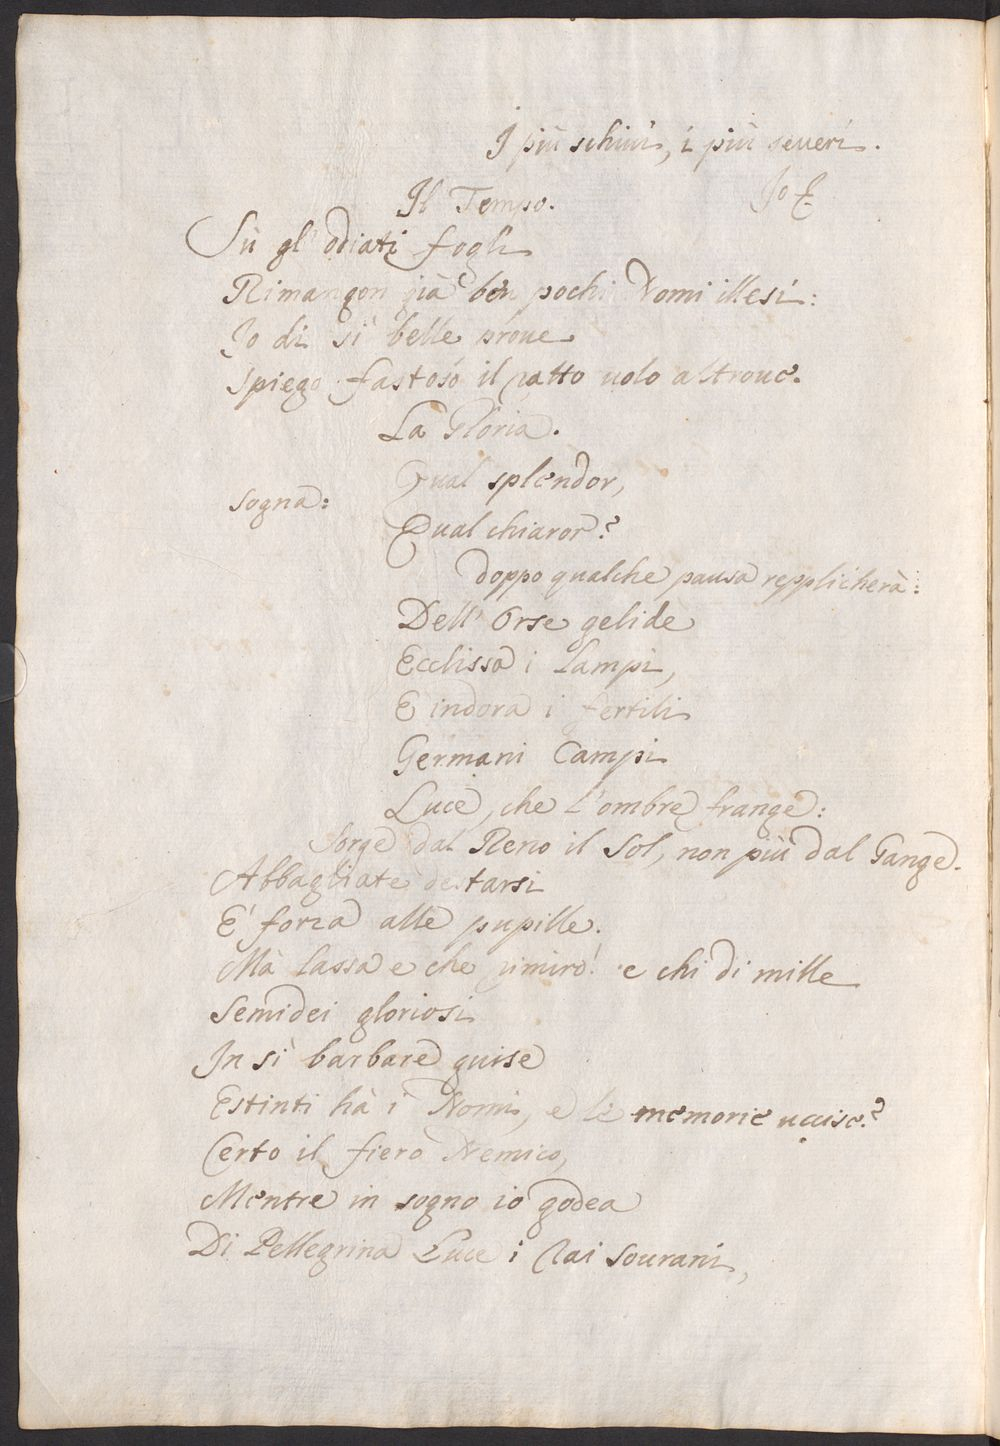 I più schiui, i più seueri.
Io &.
Il Tempo.
Sù gl' odiati fogli
Rimangon già ben pochi Nomi illesi:
Io di sì belle proue
Spiego fastoso il ratto uolo altroue.
La Gloria.
Qual splendor,
sogna:
Qual chiaror?
doppo qualche pausa repplicherà:
Dell' Orse gelide
Ecclissa i lampi,
E indora i fertili
Germani Campi
Luce, che l'ombre frange:
Sorge dal Reno il Sol, non più dal Gange.
Abbagliate destarsi
E' forza alle pupille.
Mà lassa e che rimiro! e chi di mille
Semidei gloriosi
In sì barbare guise
Estinti hà i Nomi, e le memorie uccise?
Certo il fiero Nemico,
Mentre in sogno io godea
Di Pellegrina Luce i Rai sourani,